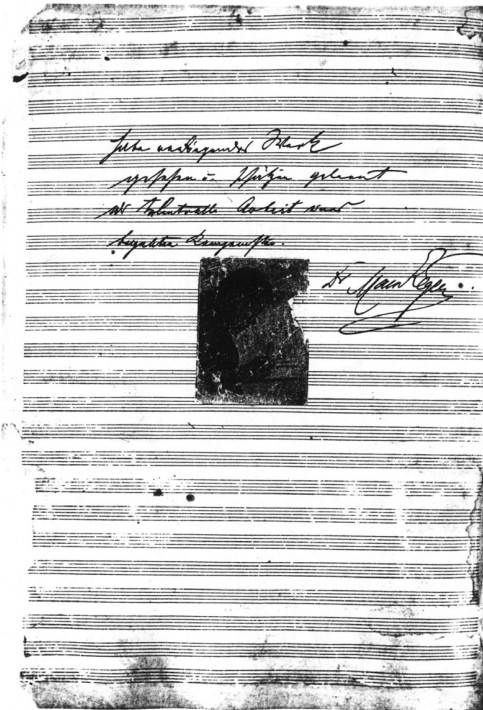 habe vorliegendes Werk
gesehen u. schätzen gelernt
als talentvolle Arbeit eines
begabten Komponisten.
Dr Max Reger.